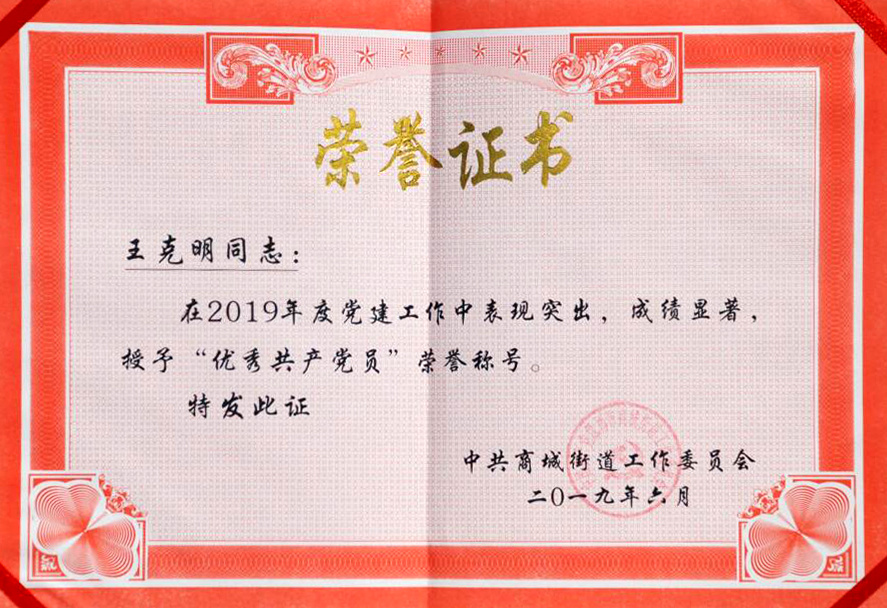 荣誉证书
王克明同志：
在2019年度党建工作中表现突出，成绩显著，
授予“优秀共产党员”荣誉称号。
特发此证
中共商城街道工作委员会
二〇一九年六月